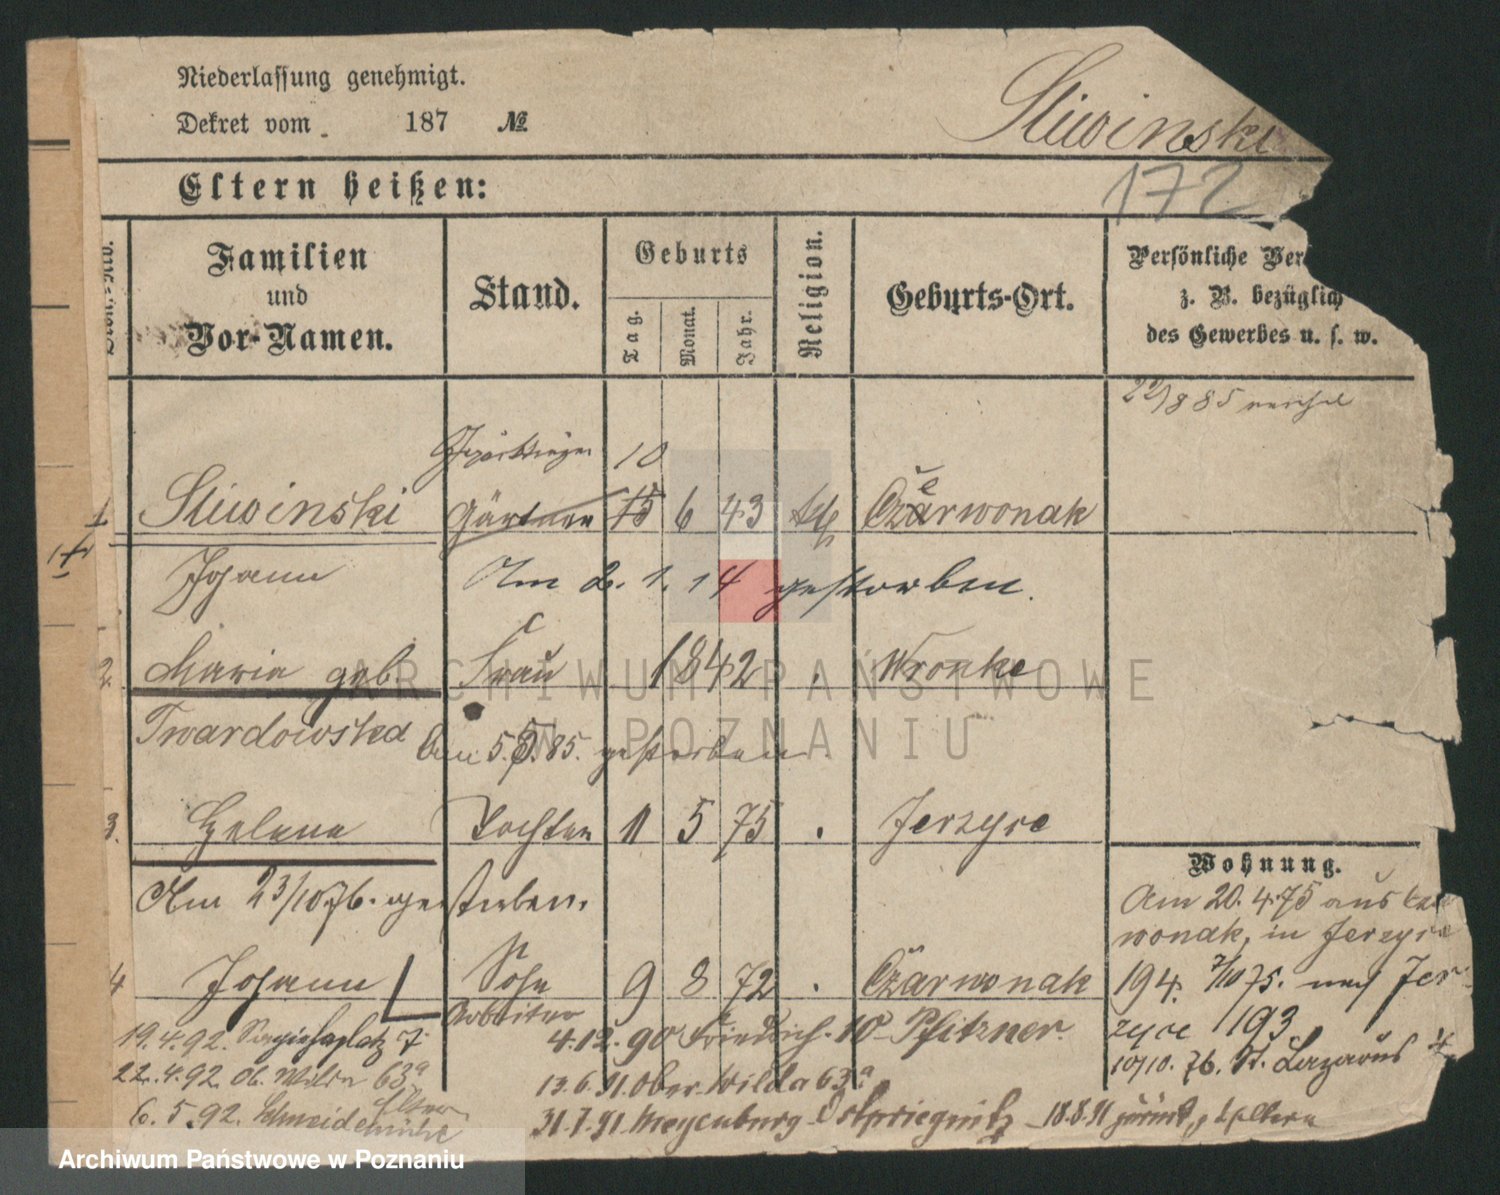 Niederlassung genehmigt.
Dekret vom 187 №
Sliwinski
172
Eltern heißen:
Familien und Vor-Namen.
Stand.
Geburts
Tag.
Monat.
Jahr.
Religion.
Geburts-Ort.
Persönliche Ver
z. B. bezüglich
des Gewerbes u. s. w.
22/8 85
10
1 Sliwinski Gärtner 15 6 43 kth Czerwonak
Johann Am 2. 1. 14 gestorben.
2 Maria geb. Frau 1842 Wronke
Twardowska Am 5. 5. 85. gestorben
3. Helene Tochter 11 5 75 Jerzyce
Am 23/10 76. gestorben.
Wohnung.
Am 20. 4. 75 aus
wonak, in Jerzyce
4 Johann Sohn 9 8 72 Czarwonak
194. 7/10 75. nach Jer
Arbeiter
zyce 193
19. 4. 92. Sapiehaplatz 7. 4. 12. 90 Friedrich. 10 Pfitzner.
10/10. 76. St. Lazarus
22. 4. 92. Ob. Wilda 63a 13. 6. 91. Ober Wilda 63a
Eltern
6. 5. 92. Schneidemühl 31. 7. 91 Meyenburg Ostpriegnitz 18. 8. 91 zurück, Eltern
ARCHIWUM PAŃSTWOWE
W POZNANIU
Archiwum Państwowe w Poznaniu